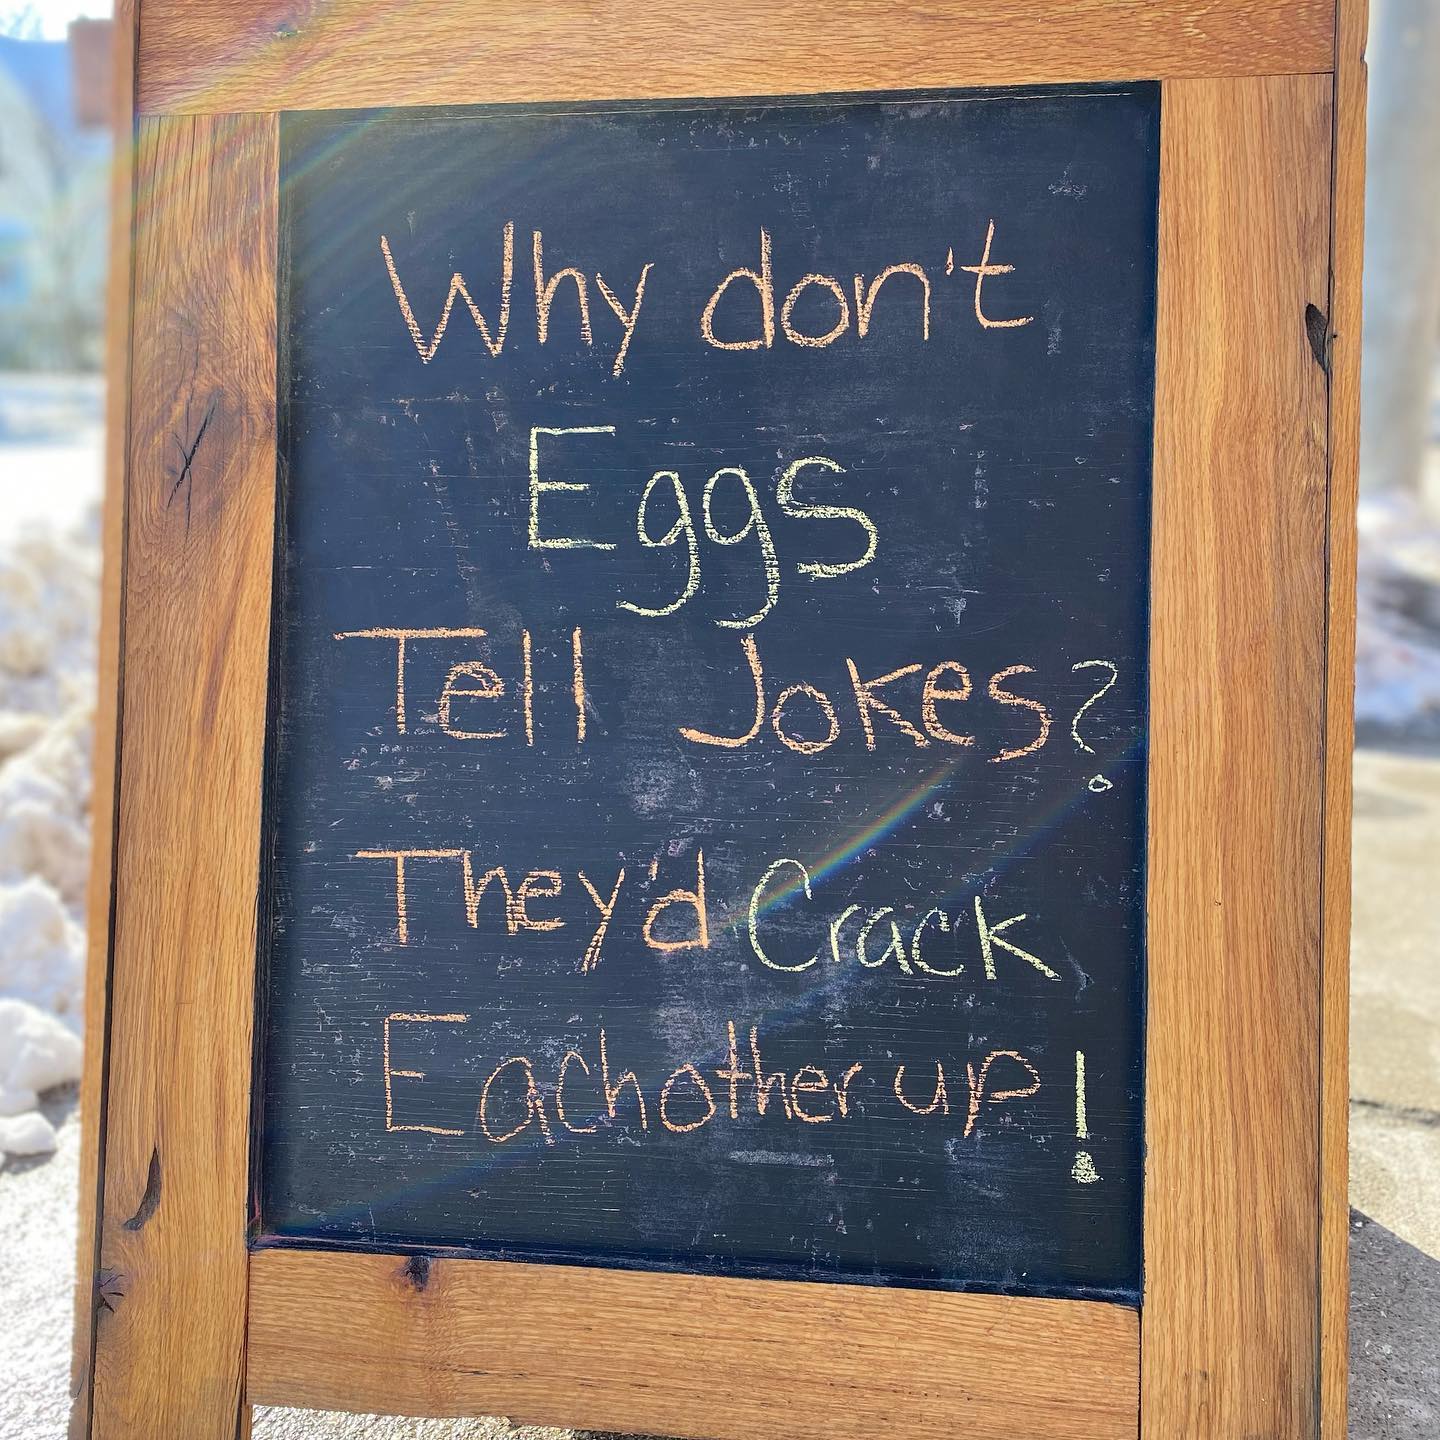 Why don't
Eggs
Tell Jokes?
They'd Crack
Eachother up!